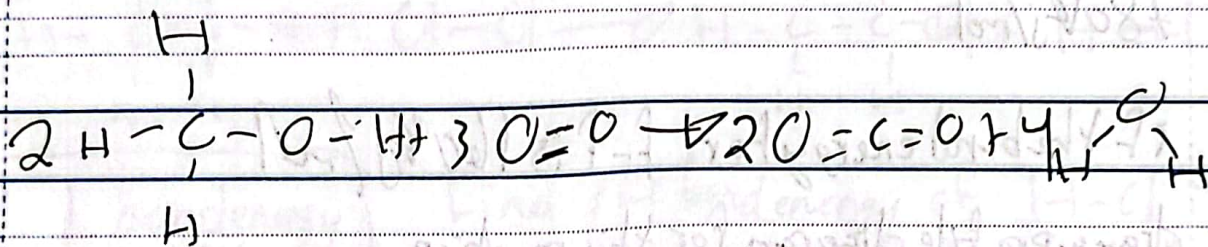 H
|
2 H - C - O - H + 3 O = O → 2 O = C = O + 4 H / O \ H
|
H